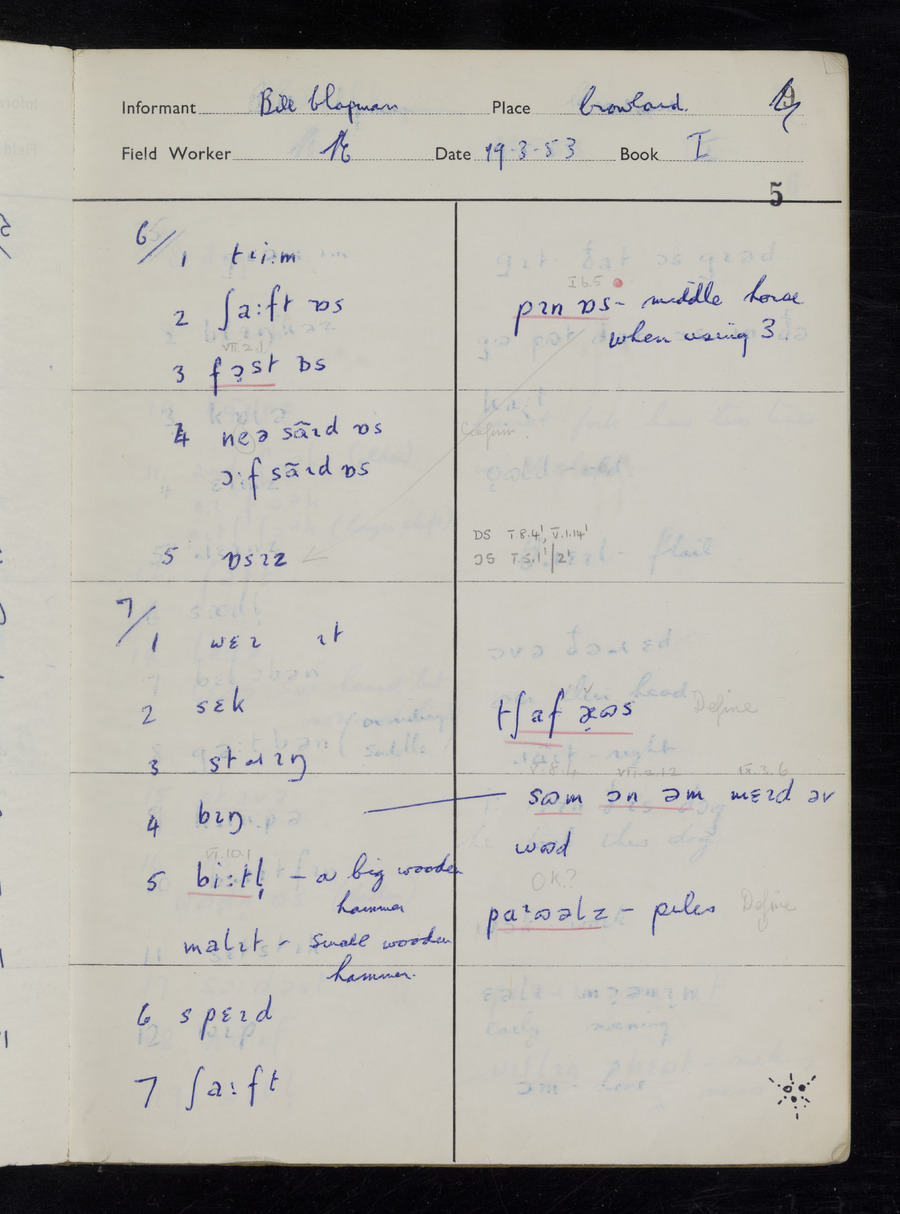 Informant Bill Chapman Place Crowland. 9
Field Worker Date 19-3-53 Book I
5
6/
1 tɹi:m
2 ʃa:ft ɒs
VII.2.1
3 fə̣st ɒs
4 neə sãɪd ɒs
ɔ:f sãɪd ɒs
5 ɒsɪz
I 6.5
pɪn ɒs - middle horse
when using 3.
ɒs I.8.4', V.1.14'
ɔs I.5.1' / 2'
7/
1 wɛɪ ɪt
2 sɛk
3 stɹɪŋ
4 bɪŋ
VI.10.1
5 bi:tl̩ - a big wooden
hammer
malɪt - small wooden
hammer.
6 spɛɪd
7 ʃa:ft
tʃaf Define
V.8.4 VII.2.12 IX.3.6
sʊm ɔn əm mɛɪd əv
wʊd
OK?
paɪʊəlz - piles Define